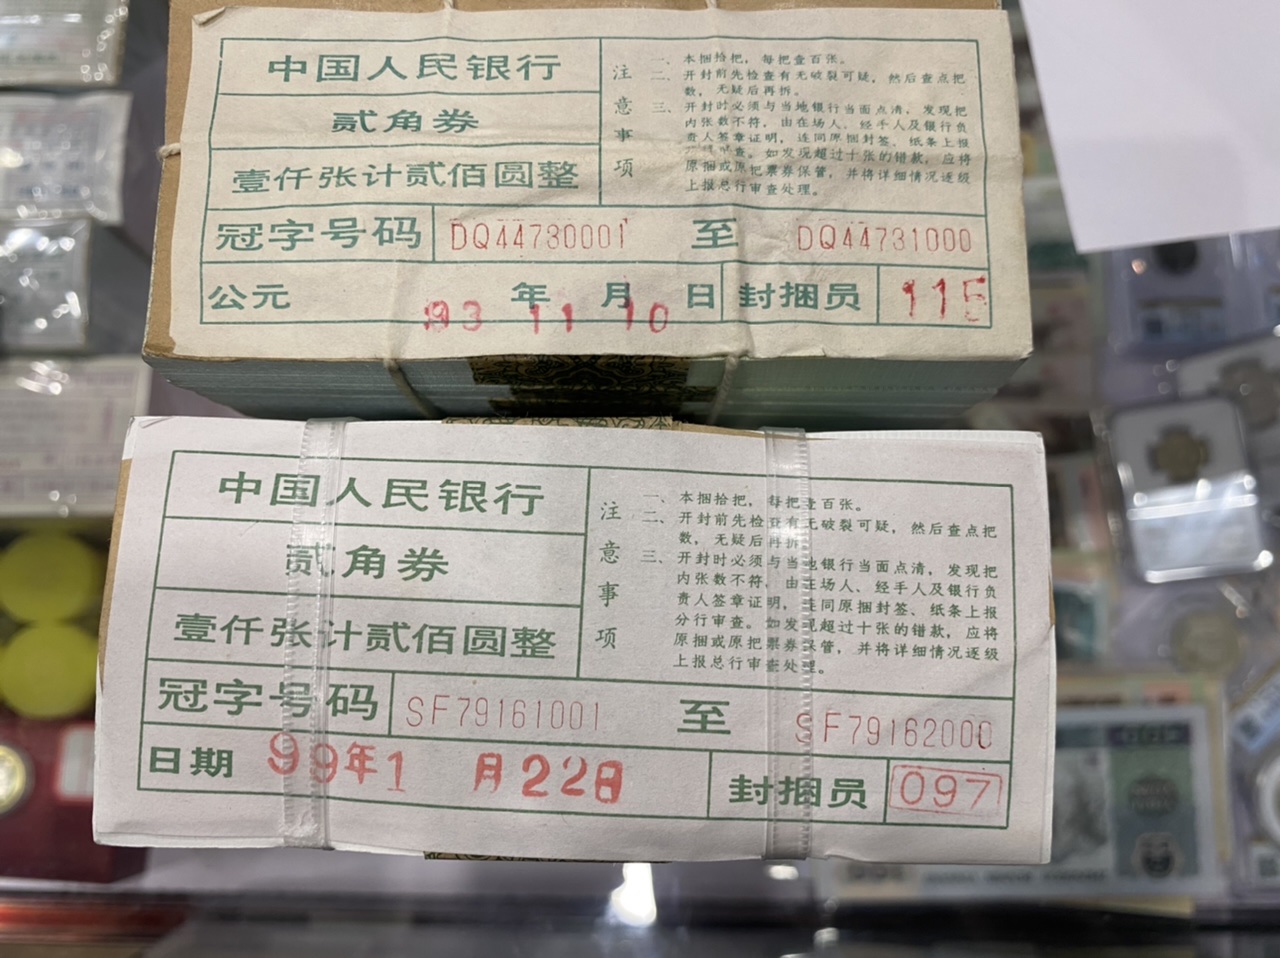 中国人民银行
贰角券
壹仟张计贰佰圆整
注意事项
一、本捆拾把，每把壹百张。
二、开封前先检查有无破裂可疑，然后查点把
数，无疑后再拆。
三、开封时必须与当地银行当面点清，发现把
内张数不符，由在场人、经手人及银行负
责人签章证明，连同原捆封签、纸条上报
审查。如发现超过十张的错款，应将
原捆或原把票券保管，并将详细情况逐级
上报总行审查处理。
冠字号码 DQ44730001 至 DQ44731000
公元 93 年 11 月 10 日 封捆员 115
中国人民银行
贰角券
壹仟张计贰佰圆整
注意事项
一、本捆拾把，每把壹百张。
二、开封前先检查有无破裂可疑，然后查点把
数，无疑后再拆
三、开封时必须与当地银行当面点清，发现把
内张数不符，由在场人、经手人及银行负
责人签章证明，连同原捆封签、纸条上报
分行审查。如发现超过十张的错款，应将
原捆或原把票券保管，并将详细情况逐级
上报总行审查处理。
冠字号码 SF79161001 至 SF79162000
日期 99年1月22日 封捆员 097